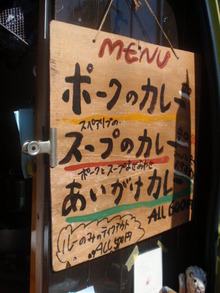 MENU
ポークのカレー
スペアリブの
スープのカレー
ポークとスープあわせた
あいがけカレー
ALL 600円
ルーのみのテイクアウト
ALL 500円